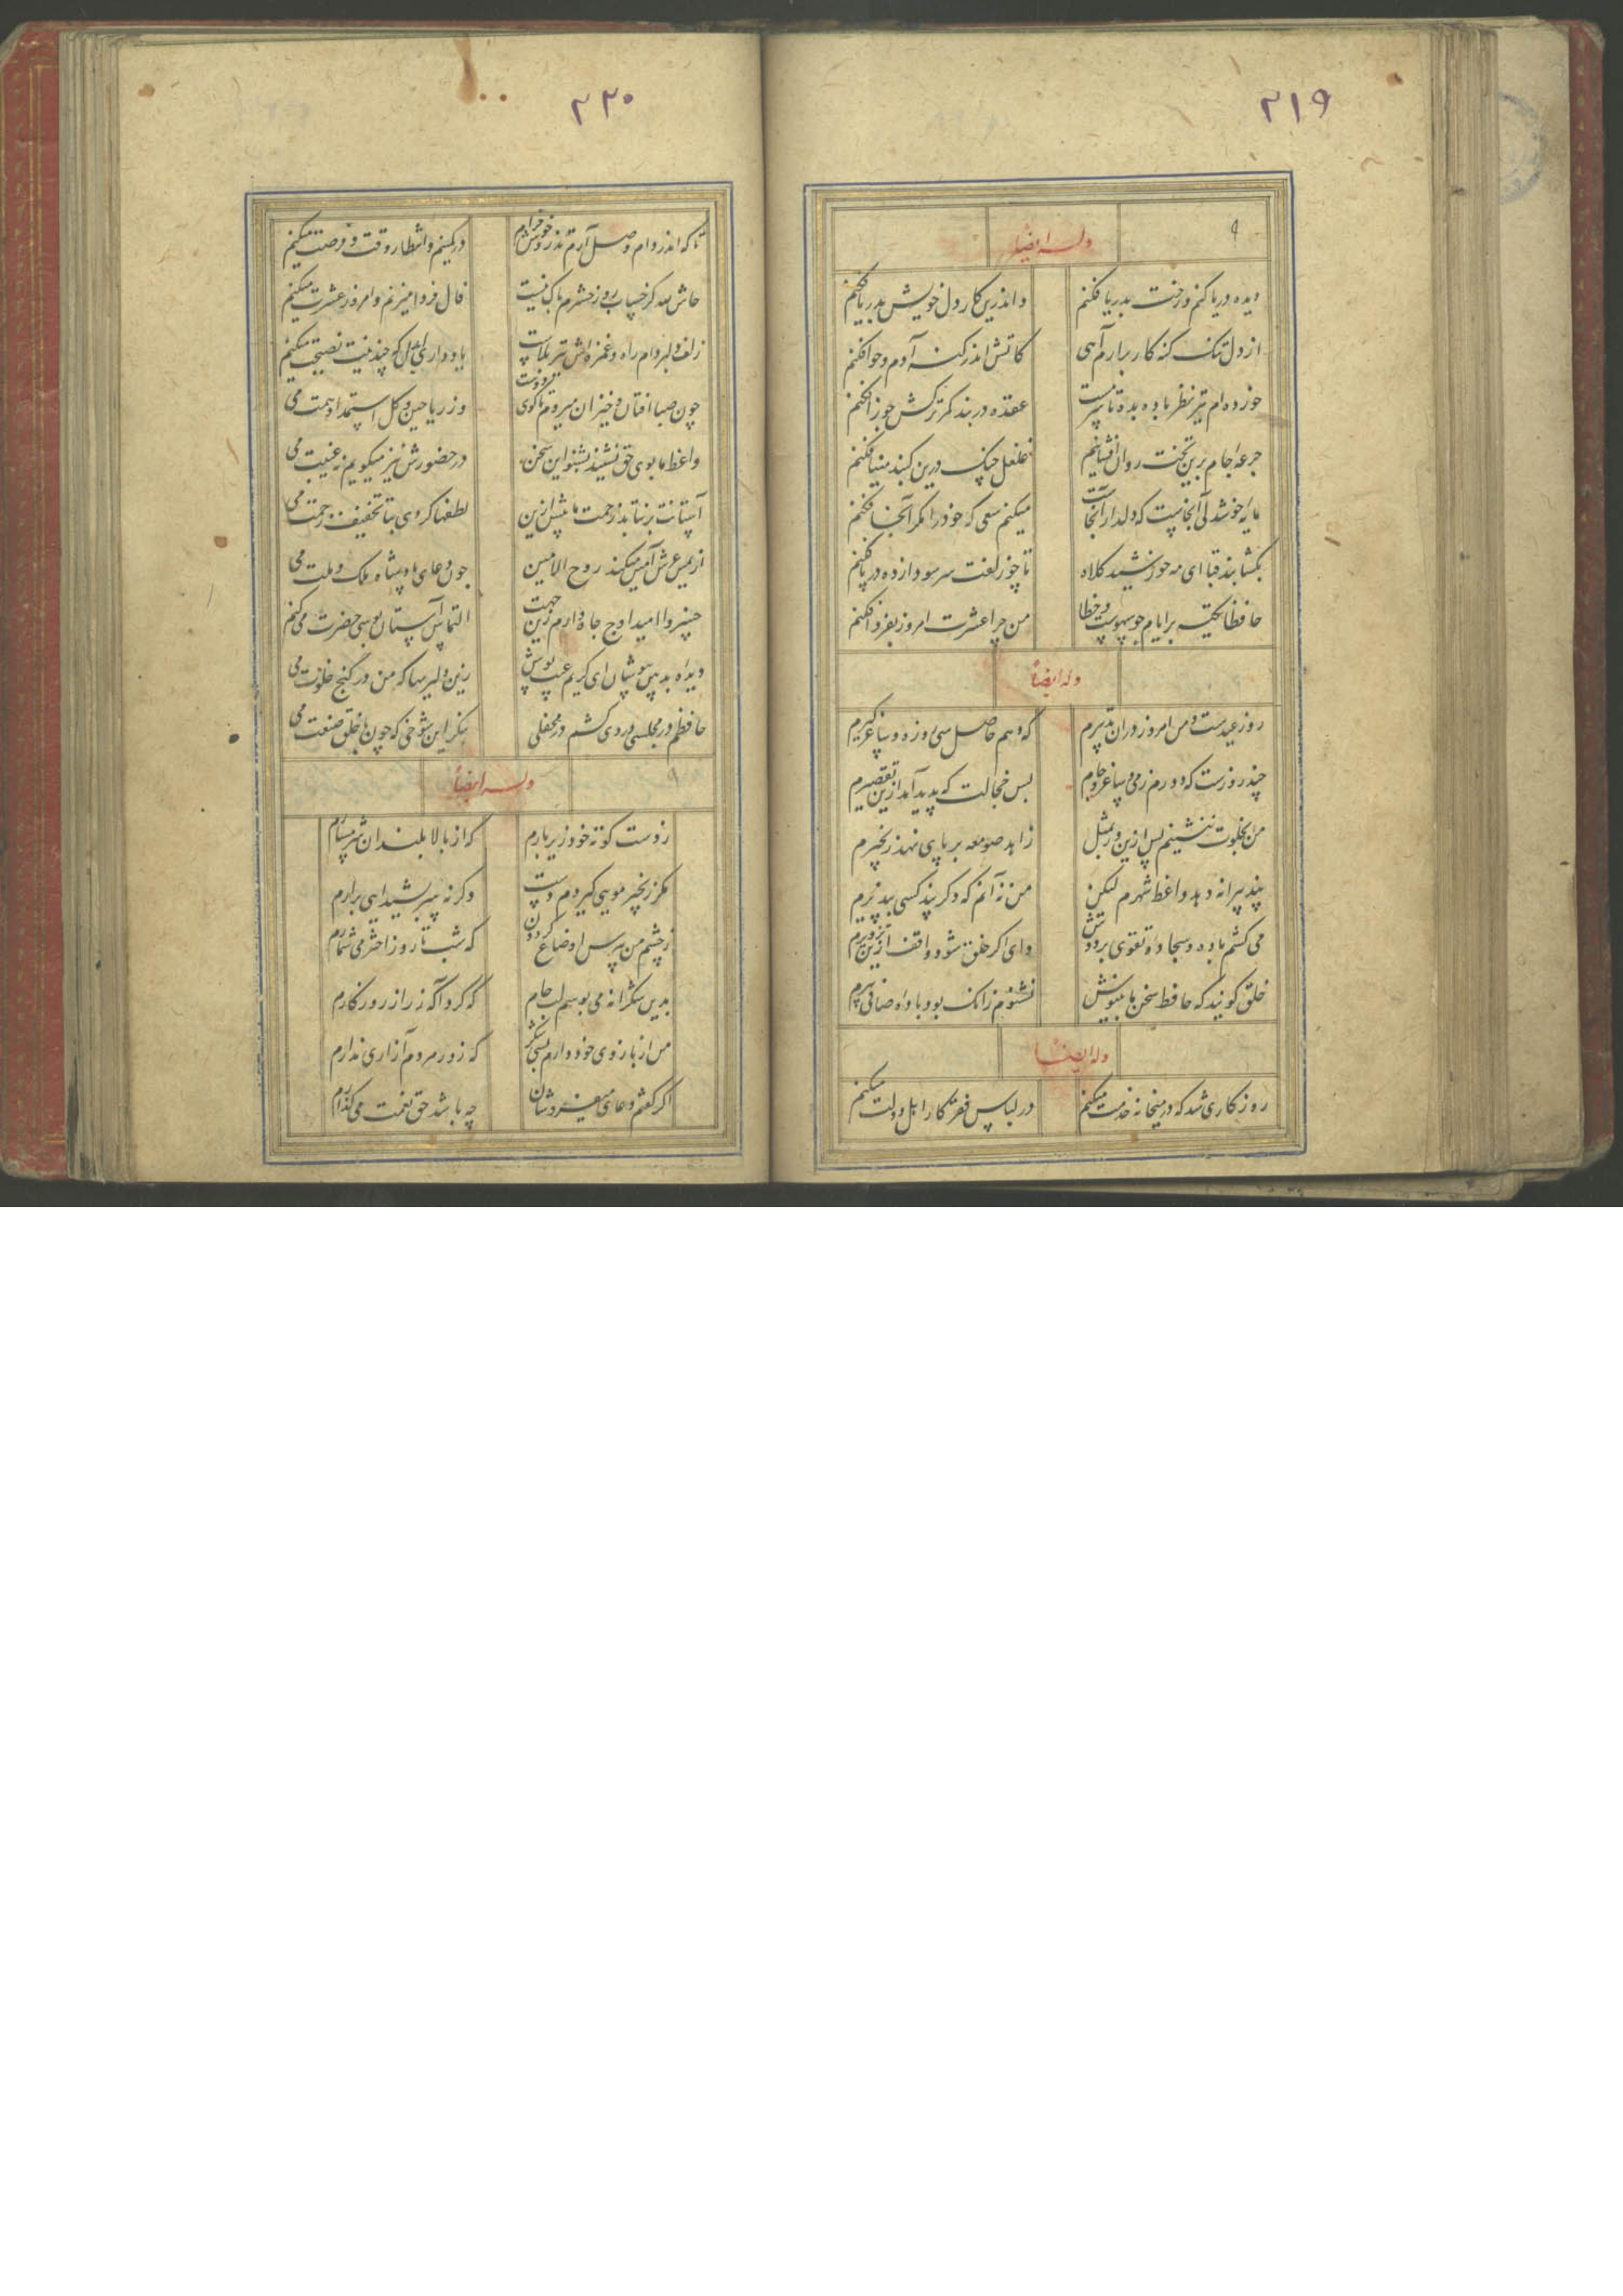 ۲۱۹
وله ایضا
دیده دریا کنم و رخت بدریا فکنم
واندرین کار دل خویش بدریا فکنم
از دل تنک کنه کار برارم آهی
کاتش اندر کنه آدم و حوا فکنم
خورده ام تیر نظر باده بده تا سرمست
عقده در بند کمر ترکش جوزا فکنم
جرعه جام برین تخت روان افشانم
غلغل چنک درین کنبد مینا فکنم
مایه خوشدلی آنجاست که دلدار آنجاست
میکنم سعی که خود را مکر آنجا فکنم
بکشا بند قبا ای مه خورشید کلاه
تا چو زلفت سر سودا زده در پا فکنم
حافظا تکیه بر ایام چو سهوست و خطا
من چرا عشرت امروز بفردا فکنم
وله ایضا
روز عیدست و من امروز دران تدبیرم
که دهم حاصل سی روزه و ساغر کیرم
چند روزست که دورم ز می و ساغر و جام
بس خجالت که پدید آمد ازین تقصیرم
من بخلوت ننشینم پس ازین ور بمثل
زاهد صومعه بر پای نهد زنجیرم
پند پیرانه دهد واعظ شهرم لیکن
من نه آنم که دکر پند کسی بپذیرم
می کشم باده و سجاده تقوی بر دوش
وای اکر خلق شود واقف ازین تزویرم
خلق کویند که حافظ سخن ما بنیوش
نشنوم زانک بود باده صافی پیرم
وله ایضا
روزکاری شد که در میخانه خدمت میکنم
در لباس فقر کار اهل دولت میکنم
۲۲۰
تا که اندر دام وصل آرم تذرو خوش خرام
در کمینم و انتظار وقت و فرصت میکنم
حاش لله کز حساب روز حشرم باک نیست
فال فردا میزنم و امروز عشرت میکنم
زلف دلبر دام راه و غمزه اش تیر بلاست
یاد دار ای دل که چندینت نصیحت میکنم
چون صبا افتان و خیزان میروم تا کوی دوست
وز ریاحین و کل استمداد همت می
واعظ ما بوی حق نشنید بشنو این سخن
در حضورش نیز میکویم نه غیبت می
آستانت برنتابد زحمت ما بیش ازین
لطفها کردی بتا تخفیف زحمت می
از یمین عرش آمین میکند روح الامین
چون دعای پادشاه ملک و ملت می
خسروا امید اوج جاه دارم زین جهت
التماس آستان بوسی حضرت می کنم
دیده بدبین بپوشان ای کریم عیب پوش
زین دلیریها که من در کنج خلوت می
حافظم در مجلسی دردی کشم در محفلی
بنکر این شوخی که چون با خلق صنعت می
وله ایضا
ز دست کوته خود زیر بارم
که از بالا بلندان شرمسارم
مکر زنجیر مویی کیردم دست
وکرنه سر بشیدایی برارم
ز چشم من بپرس اوضاع کردون
که شب تا روز اختر می شمارم
بدین شکرانه می بوسم لب جام
که کرد آکه ز راز روزکارم
من از بازوی خود دارم بسی شکر
که زور مردم آزاری ندارم
اکر کفتم دعای میفروشان
چه باشد حق نعمت می کذارم